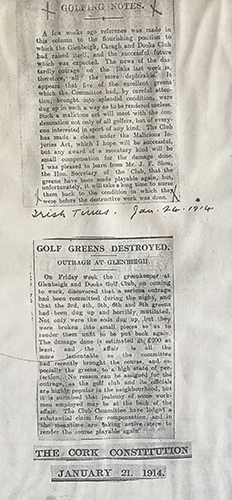 GOLFING NOTES.
A few weeks ago reference was made in
this column to the flourishing position to
which the Glenbeigh, Caragh and Dooks Club
had raised itself, and the successful future
which was expected. The news of the das-
tardly outrage on the links last week is,
therefore, all the more deplorable. It
appears that five of the excellent greens
which the Committee had, by careful atten-
tion, brought into splendid condition, were
dug up in such a way as to be rendered useless.
Such a malicious act will meet with the con-
demnation not only of all golfers, but of every-
one interested in sport of any kind. The Club
has made a claim under the Malicious In-
juries Act, which I hope will be successful,
but any award of a monetary kind will be
small compensation for the damage done.
I was pleased to learn from Mr. J. F. Shea,
the Hon. Secretary of the Club, that the
greens have been made playable again, but,
unfortunately, it will take a long time to nurse
them back to the condition in which they
were before the destructive work was done.
Irish Times. Jan. 24. 1914
GOLF GREENS DESTROYED.
OUTRAGE AT GLENBEIGH.
On Friday week the greenkeeper at
Glenbeigh and Dooks Golf Club, on coming
to work, discovered that a serious outrage
had been committed during the night, and
that the 3rd, 4th, 5th, 6th and 8th greens
had been dug up and horribly mutilated.
Not only were the sods dug up, but they
were broken into small pieces so as to
render them unfit to be put back again.
The damage done is estimated at £200 at
least, and the affair is all the
more lamentable as the committee
had recently brought the course, and es-
pecially the greens, to a high state of per-
fection. No reason can be assigned for the
outrage, as the golf club and its officials
are highly popular in the neighbourhood, but
it is surmised that jealousy of some work-
men employed may be at the back of the
affair. The Club Committee have lodged a
substantial claim for compensation, and in
the meantime are taking active steps to
render the course playable again.
THE CORK CONSTITUTION
JANUARY 21, 1914.